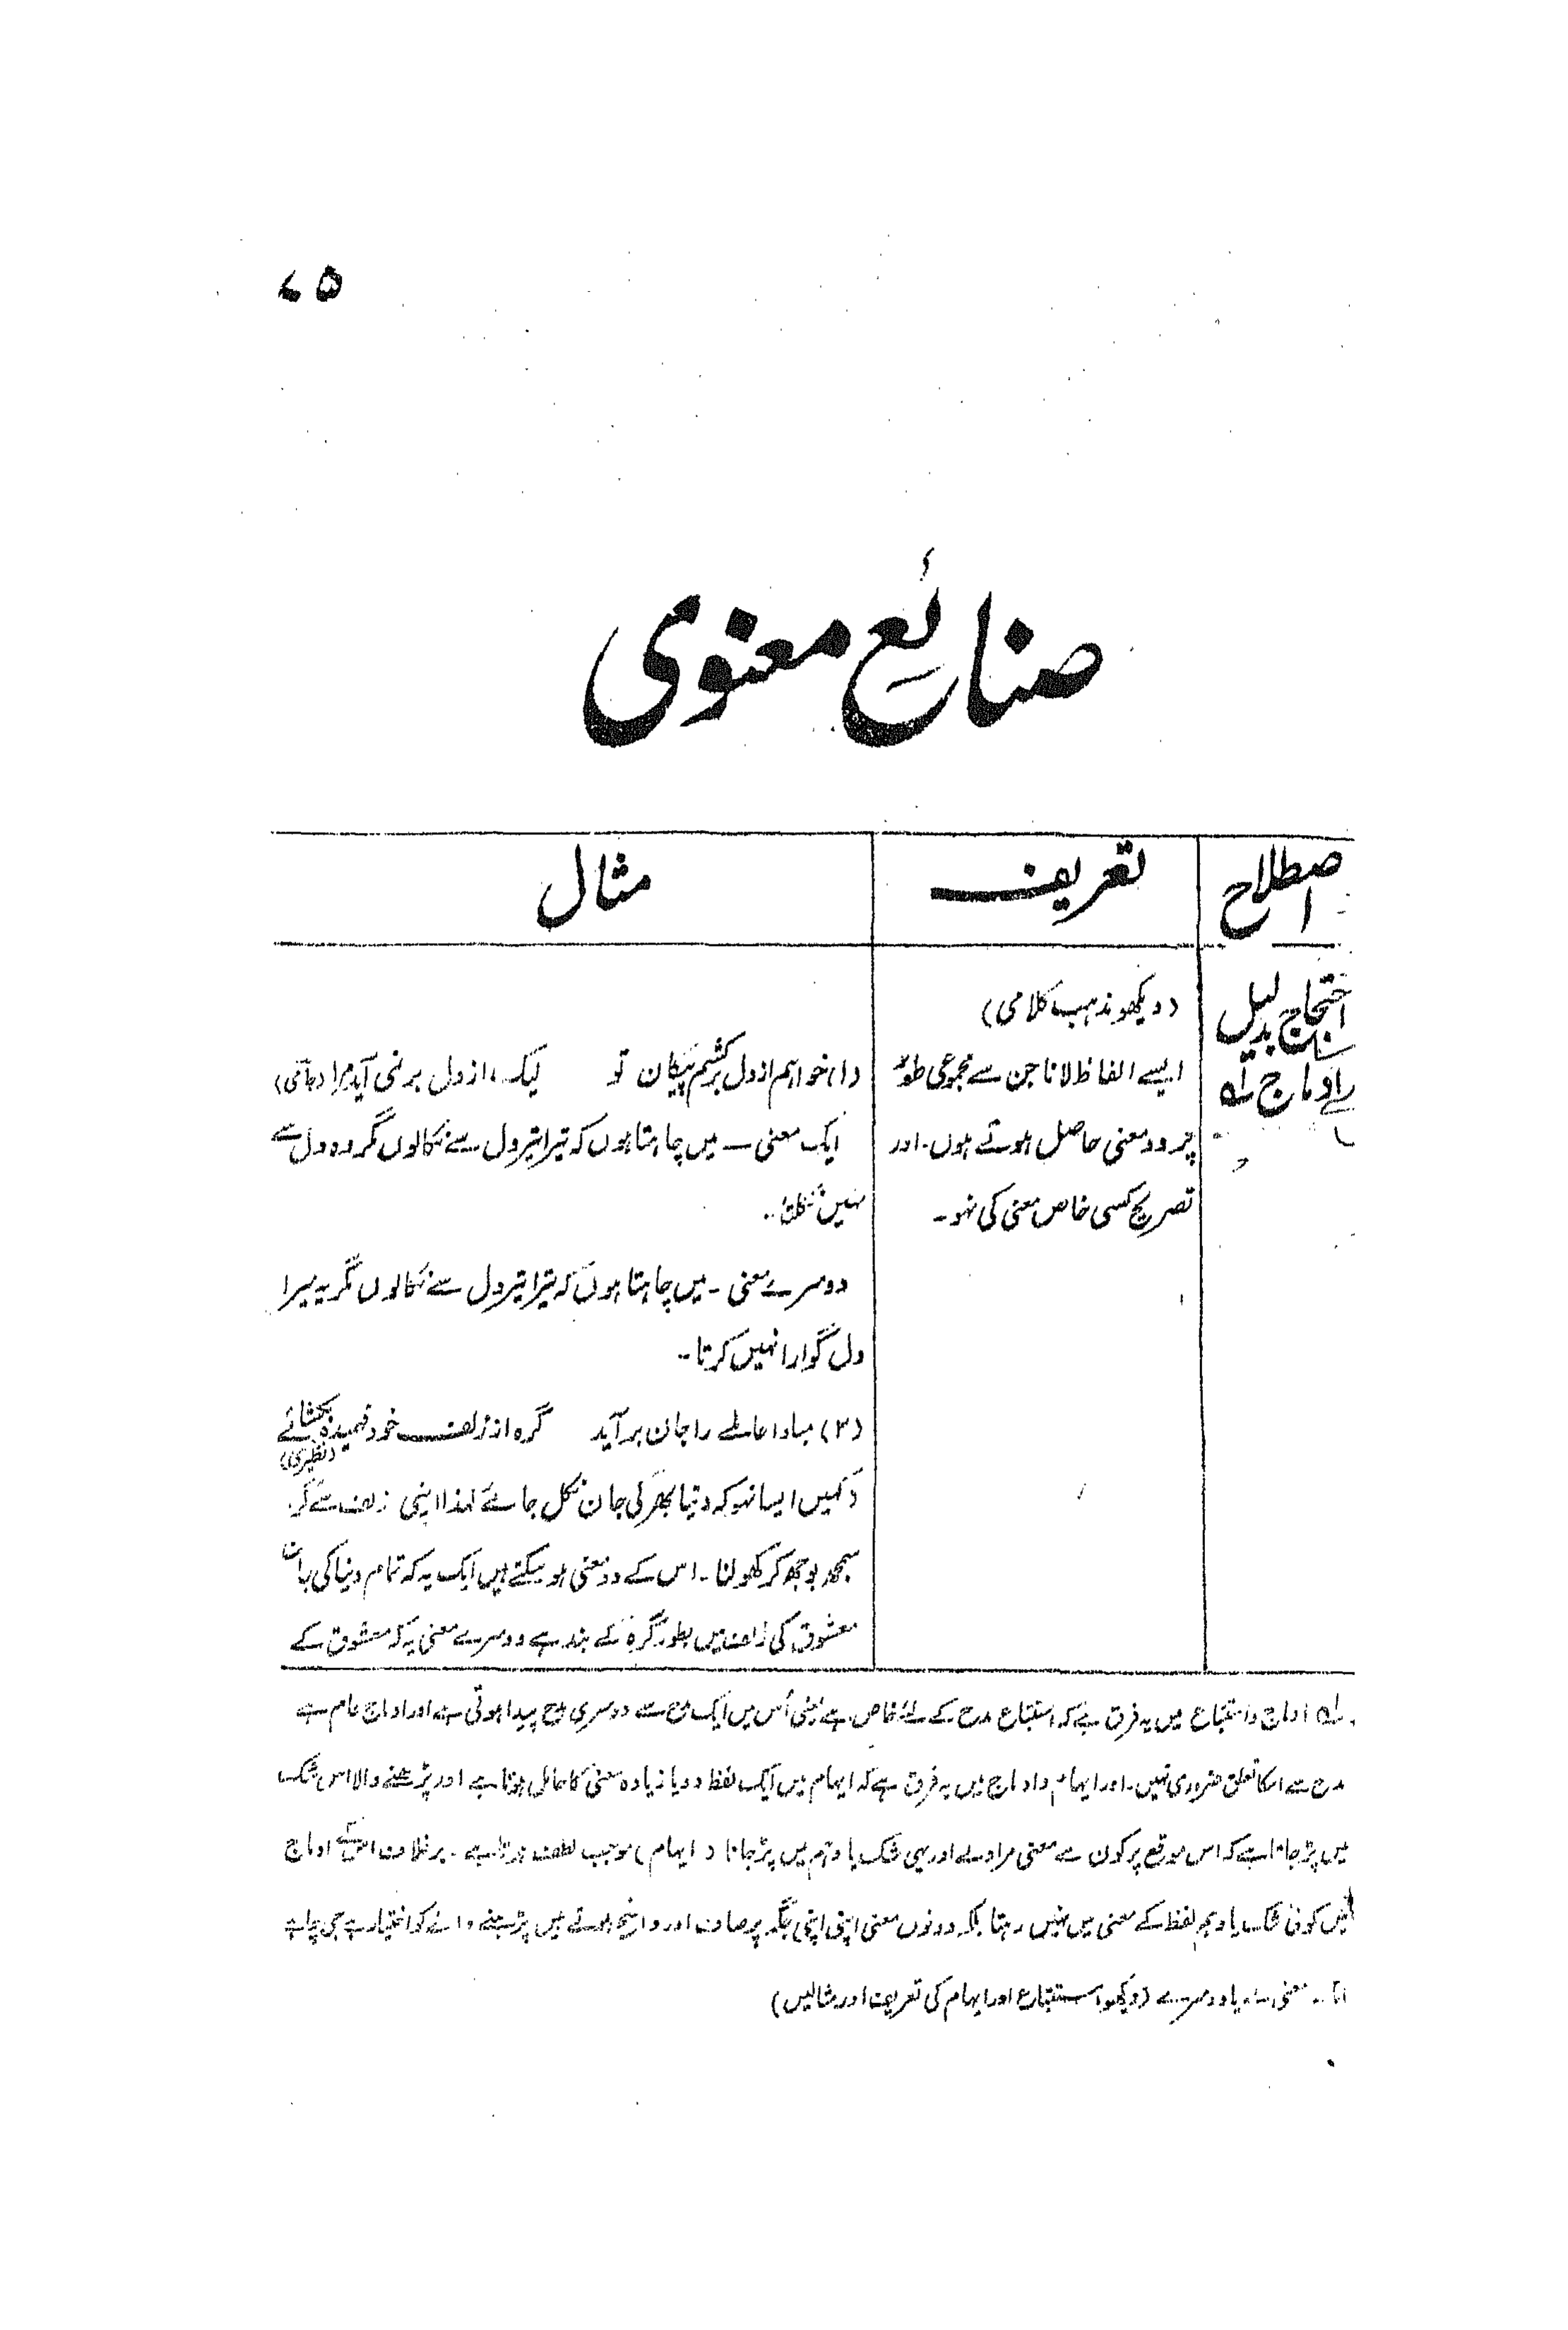 ۷۵
صنائع معنوی
اصطلاح
تعریف
مثال
احتجاج بدلیل
(دیکھو مذہب کلامی)
ادماج لہ
ایسے الفاظ لانا جن سے مجموعی طور
پر دو معنی حاصل ہوتے ہوں۔ اور
تصریح کسی خاص معنی کی نہو۔
(۱) خواہم از دل برکشم پیکان تو لیک از دل برنمی آید مرا (جامی)
ایک معنی ــ میں چاہتا ہوں کہ تیرا تیر دل سے نکالوں مگر وہ دل سے
نہیں نکلتا۔
دوسرے معنی ۔ میں چاہتا ہوں کہ تیرا تیر دل سے نکالوں مگر یہ میرا
دل گوارا نہیں کرتا۔
(۲) مبادا عالمے را جان برآید گرہ از زلف خود فہمیدہ بکشائے
(نظیری)
کہیں ایسا نہو کہ دنیا بھر کی جان نکل جائے لہذا اپنی زلف سے گرہ
سمجھ بوجھ کر کھولنا ۔ اس کے دو معنی ہو سکتے ہیں ایک یہ کہ تمام دنیا کی جان
معشوق کی زلف میں بطور گرہ کے بند ہے دوسرے معنی یہ کہ معشوق کے
لہ ادماج و استتباع میں یہ فرق ہے کہ استتباع مدح کے لئے خاص ہے یعنی اُس میں ایک مدح سے دوسری مدح پیدا ہوتی ہے اور ادماج عام ہے
مدح سے اسکا تعلق ضروری نہیں۔ اور ایہام و ادماج میں یہ فرق ہے کہ ایہام میں ایک لفظ دو یا زیادہ معنی کا حامل ہوتا ہے اور پڑھنے والا اس شک
میں پڑ جاتا ہے کہ اس موقع پر کون سے معنی مراد لے اور یہی شک یا وہم میں پڑ جانا (ایہام) موجب لطف ہوتا ہے ۔ برخلاف اسکے ادماج
میں کوئی شک یا وہم لفظ کے معنی میں نہیں رہتا بلکہ دونوں معنی اپنی اپنی جگہ پر صاف اور واضح ہوتے ہیں پڑھنے والے کو اختیار ہے جی چاہے
معنی لے یا دوسرے (دیکھو استتباع اور ایہام کی تعریف اور مثالیں)